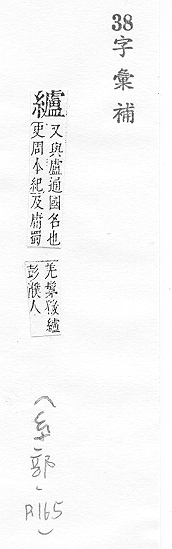 38
字彙補
纑
又與盧通國名也
史周本紀及庸蜀
羌髳微纑
彭濮人
(糸部, P.165)